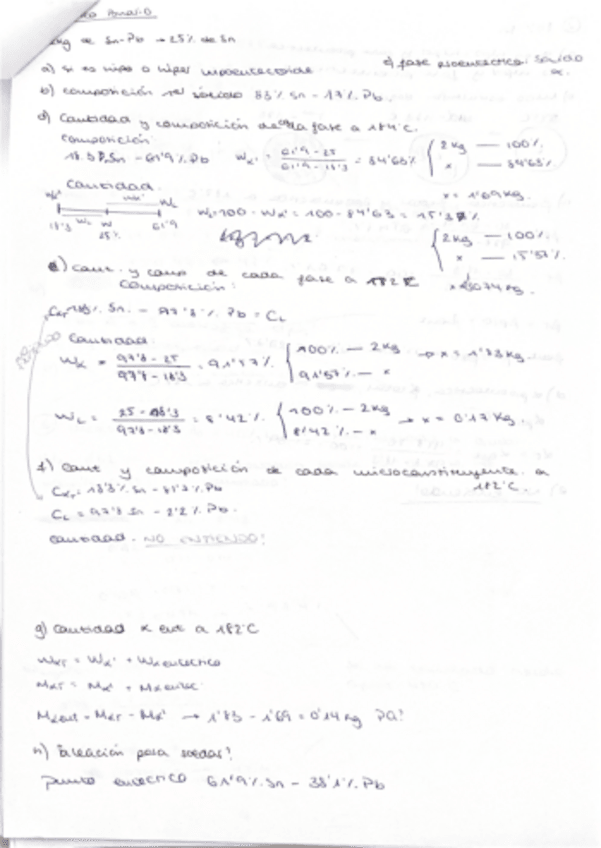 kg de Sn-Pb → 25% de Sn
a) si es hipo o hiper
c) fase proeutéctica: Sólido α.
b) composición 1er sólido 83% Sn - 17% Pb
d) Cantidad y composición de cada fase a 184°C.
Composición:
18'3% Sn - 61'9% Pb Wα' = (61'9 - 25)/(61'9 - 18'3) = 84'63% { 2kg — 100% x — 84'63%
Cantidad. x = 1'69 kg.
WL = 100 - Wα' = 100 - 84'63 = 15'37%
18'3 WL W 25% 61'9
{ 2kg — 100% x — 15'37%
e) cant. y comp de cada fase a 182°C
Composición:
Sn - 97'8% Pb = CL
Cantidad.
Wα = (97'8 - 25)/(97'8 - 18'3) = 91'57% { 100% — 2kg 91'57% — x → x = 1'83 kg.
WL = (25 - 18'3)/(97'8 - 18'3) = 8'42% { 100% — 2kg 8'42% — x → x = 0'17 kg.
f) Cant y composición de cada microconstituyente a 182°C.
CαT = 18'3% Sn - 81'7% Pb
CL = 97'8 Sn - 2'2% Pb.
Cantidad. NO ENTIENDO!
g) Cantidad α eut a 182°C
WαT = Wα' + Wα eutéctico
MαT = Mα' + Mα eutéc.
Mα eut = MαT - Mα' → 1'83 - 1'69 = 0'14 kg
h) aleación para soldar?
Punto eutéctico 61'9% Sn - 38'1% Pb